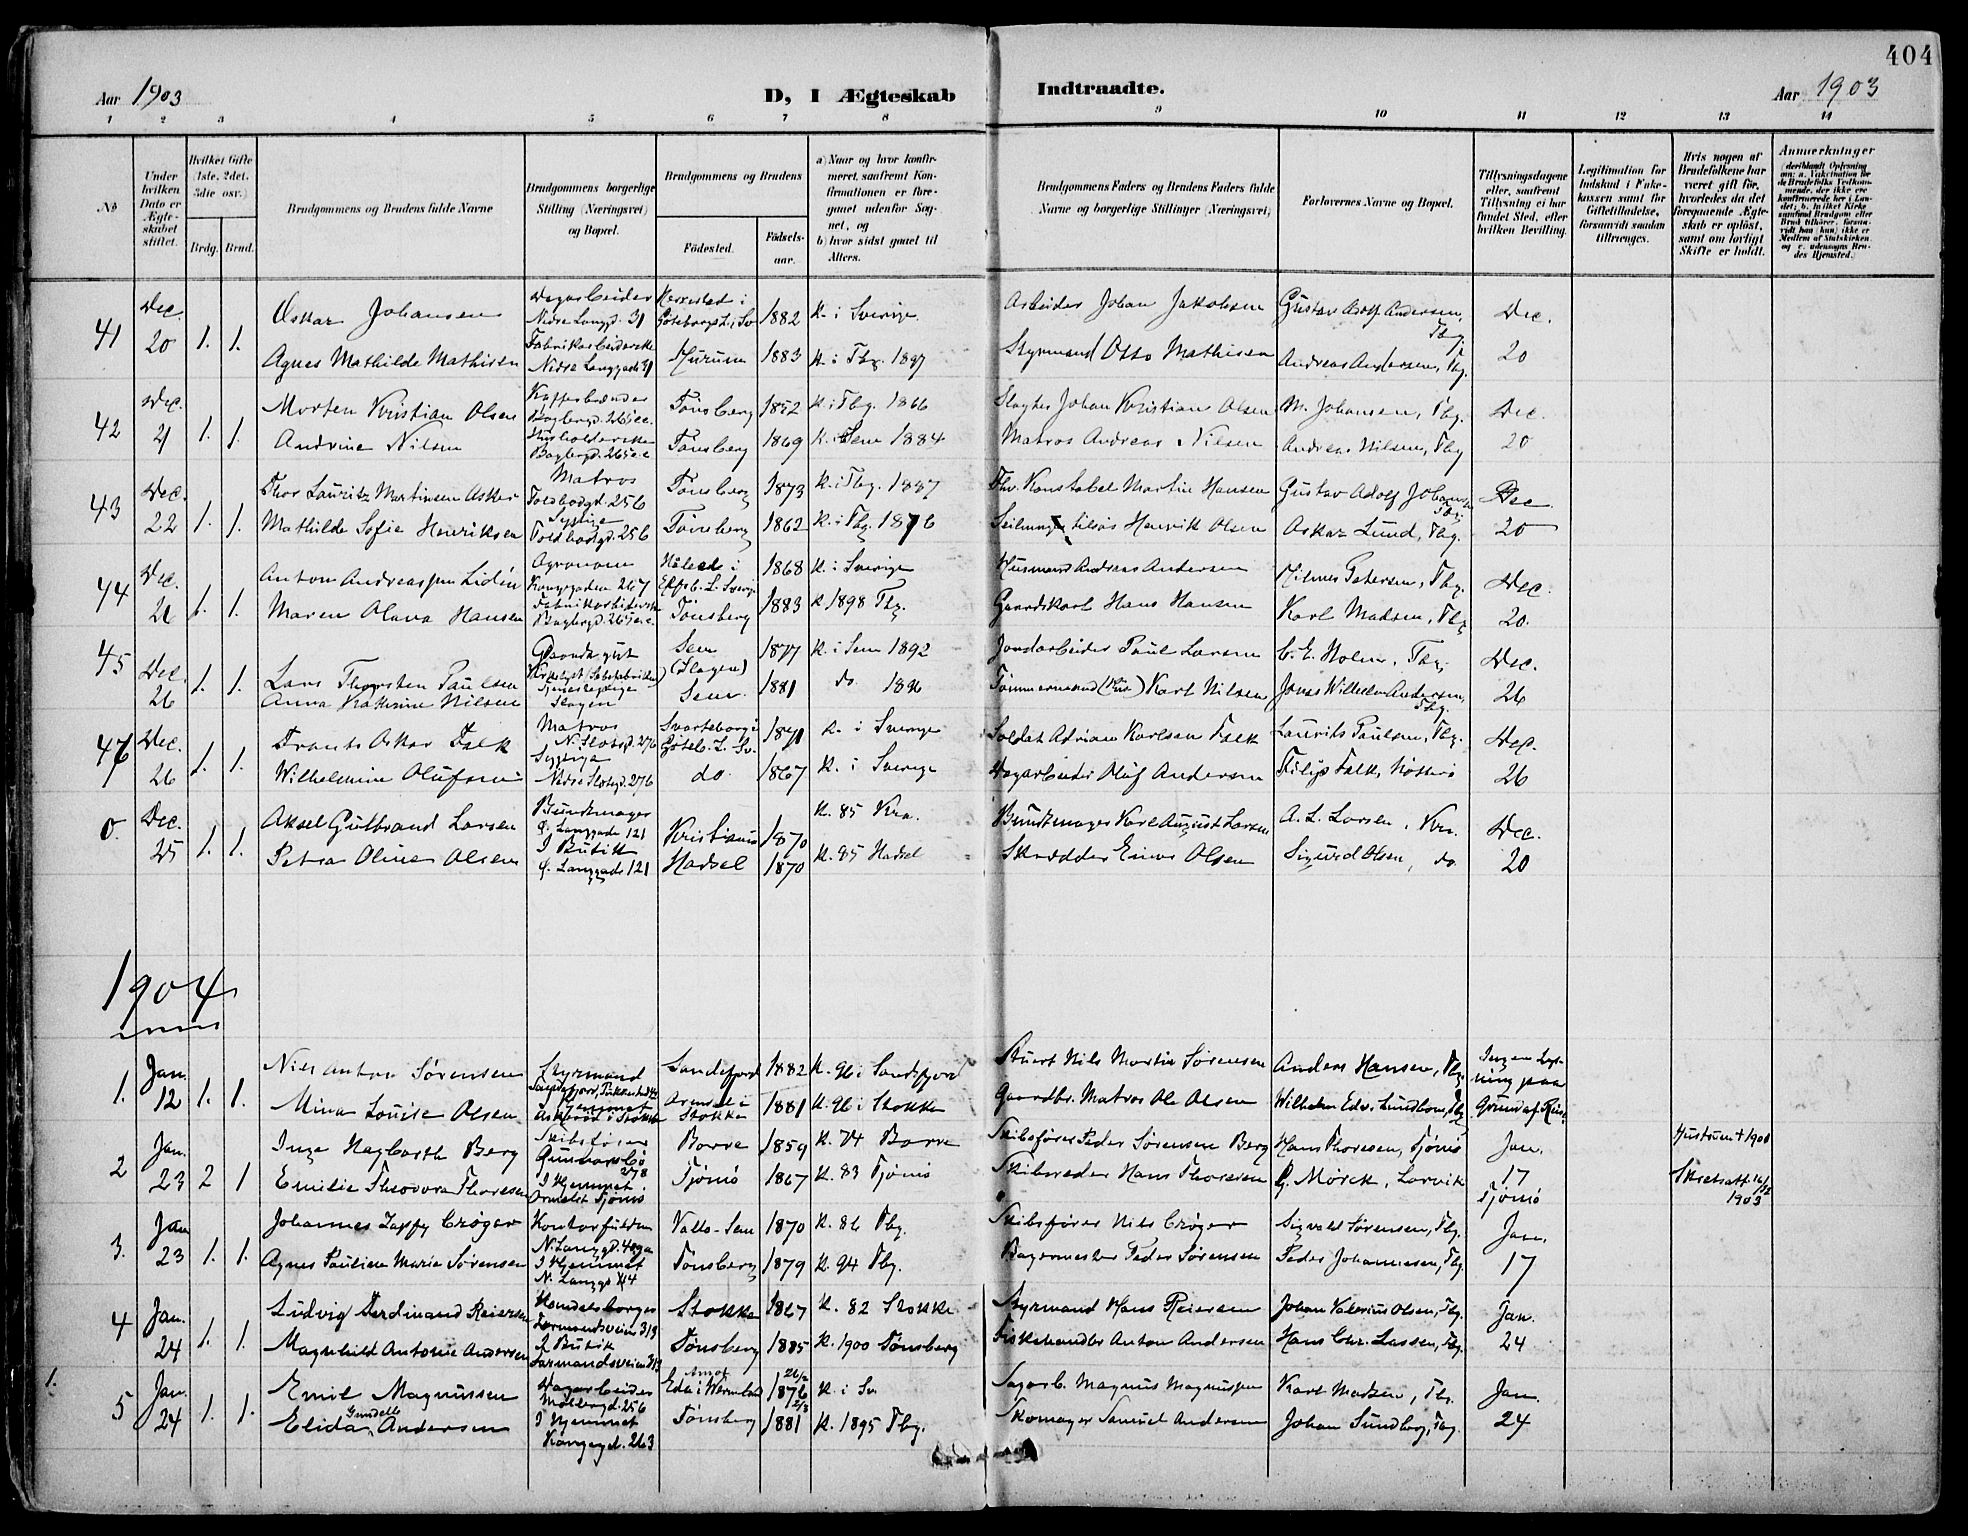 404
Aar 1903
D, I Ægteskab
Indtraadte.
Aar 1903
1 2 3 4 5 6 7 8 9 10 11 12 13 14
No
Under hvilken Dato er Ægteskabet stiftet.
Hvilket Gifte (1ste, 2det, 3die osv.)
Brdg. Brud.
Brudgommens og Brudens fulde Navne
Brudgommens borgerlige Stilling (Næringsvei) og Bopæl.
Brudgommens og Brudens
Fødested.
Fødselsaar.
a) Naar og hvor konfirmeret, saafremt Konfirmationen er foregaaet udenfor Sognet, og
b) hvor sidst gaaet til Alters.
Brudgommens Faders og Brudens Faders fulde Navne og borgerlige Stillinger (Næringsvei)
Forlovernes Navne og Bopæl.
Tillysningsdagene eller, saafremt Tillysning ei har fundet Sted, efter hvilken Bevilling.
Legitimation for Indskud i Enkekassen samt for Giftetilladelse, forsaavidt saadan tiltrænges.
Hvis nogen af Brudefolkene har været gift før, hvorledes da det foregaaende Ægteskab er opløst, samt om lovligt Skifte er holdt.
Anmerkninger
41 Dec. 20 1. 1.
Oskar Johansen Dagarbeider Nedre Langgd. 31 Göteborgs L. i Sv. 1882 K. i Sverige. Arbeider Johan Jakobsen Gustav Adolf Andersen, Tbg. Dec.
Agnes Mathilde Mathisen Fabrikarbeiderske Nedre Langgade 31 Hurum 1883 K. i Tbg. 1897 Styrmand Otto Mathisen Andreas Andersen, Tbg. 20
42 Dec. 21 1. 1.
Morten Kristian Olsen Kaffebrænder Tönsberg 1852 K. i Tbg. 1866 Johan Kristian Olsen M. Johansen, Tbg. Dec.
Andrine Nilsen Husholderske Tönsberg 1869 K. i Sem 1884 Matros Andreas Nilsen Andreas Nilsen, Tbg 20
43 Dec. 22 1. 1.
Thor Lauritz Martinsen Asker Matros Toldbodgd. 256 Tönsberg 1873 K. i Tbg. 1887 Konstabel Martin Hansen Gustav Adolf Johansen Tbg. Dec
Mathilde Sofie Henriksen Syerske Toldbodgd. 256 Tönsberg 1862 K. i Tbg 1876 Henrik Olsen Oskar Lund, Tbg. 20
44 Dec. 26 1. 1.
Anton Andreassen Lidén Agronom Konggaden 267 1868 K. i Sverige Husmand Andreas Andersen Hilmer Petersen, Tbg. Dec.
Maren Olava Hansen Tönsberg 1883 K 1898 Tbg. Gaardskarl Hans Hansen Karl Madsen, Tbg 20.
45 Dec. 26 1. 1.
Lars Thorsten Paulsen Gaardsgut Sem (Slagen) 1877 K. i Sem 1892 Jordarbeider Paul Larsen C. E. Holm, Tbg. Dec.
Anna Kathrine Nilsen Tjenestepige Slagen Sem. 1881 do. 1896 Tømmermand Karl Nilsen Jonas Wilhelm Andersen, Tbg. 26
46 Dec. 26 1. 1.
Frants Oskar Falk Matros N. Slotsgd. 276 Svarteborg i Göteb. L. Sv. 1871 K. i Sverige Soldat Adrian Karlsen Falk Laurits Paulsen, Tbg. Dec.
Wilhelmine Olufsen Nedre Slotsgd. 276 do. 1867 K. i Sverige Dagarbeider Oluf Andersen Filip Falk, Nøtterø 26
0. Dec. 25 1. 1.
Aksel Gulbrand Larsen Bundtmager Ø. Langgade 121 Kristiania 1870 K. 85 Kra. Bundtmager Karl August Larsen A. L. Larsen, Kra. Dec.
Petra Oline Olsen I Butik Ø. Langgade 121 Hadsel 1870 K. 85 Hadsel Skrædder Einar Olsen Sigurd Olsen, do 20
1904
1. Jan. 12 1. 1.
Nils Anton Sørensen Styrmand Sandefjord 1882 K. 96 i Sandefjord Stuert Nils Martin Sørensen Anders Hansen, Tbg. Ingen Lysning paa
Mina Louise Olsen I Hjemmet Stokke 1881 K. 96 i Stokke Gaardbr. Matros Ole Olsen Wilhelm Edv. Lundbom, Tbg Grund af Reise
2 Jan. 23 2 1
Inge Hagbarth Berg Skibsfører Gunnarsbø 278 Borre 1859 K. 74 Borre Skibsfører Peder Sørensen Berg Hans Thoresen, Tjømø Jan. Hustruen + 1900
Emilie Theodora Thoresen I Hjemmet Ormelet Tjømø Tjømø 1867 K. 83 Tjømø Skibsreder Hans Thoresen Mørck, Larvik 17 Tjømø Skiteatt. 16/12 1903
3. Jan 23 1. 1.
Johannes Zappfy Crøger Valle-Sem 1870 K. 86 Tbg. Skibsfører Nils Crøger Sigvald Sørensen, Tbg. Jan.
Agnes Pauline Marie Sørensen I Hjemmet N. Langgd 44 Tönsberg 1879 K. 94 Tbg. Bagermester Peder Sørensen Peder Johannesen, Tbg. 17
4 Jan. 24 1. 1.
Ludvig Ferdinand Reiersen Handelsborger Farmandsveien 313 Stokke 1867 K. 82 Stokke Styrmand Hans Reiersen Johan Valerius Olsen, Tbg. Jan.
Magnhild Antonie Andersen I Butik Farmandsveien 313 Tønsberg 1885 K. 1900 Tønsberg Fiskehandler Anton Andersen Hans Chr. Lassen, Tbg. 24
1.
5 Jan. 24 1. 1.
Emil Magnussen Dagarbeider Møllergd. 256 Eda i Wermland 26/2 1876 K. i Sv. Dagarb. Magnus Magnussen Karl Madsen, Tbg. Jan.
Elida Gundelle Andersen I Hjemmet Kongegd. 263 Tønsberg 2/8 1881 K. 1895 Tbg. Skomager Samuel Andersen Johan Sundberg, Tbg. 24